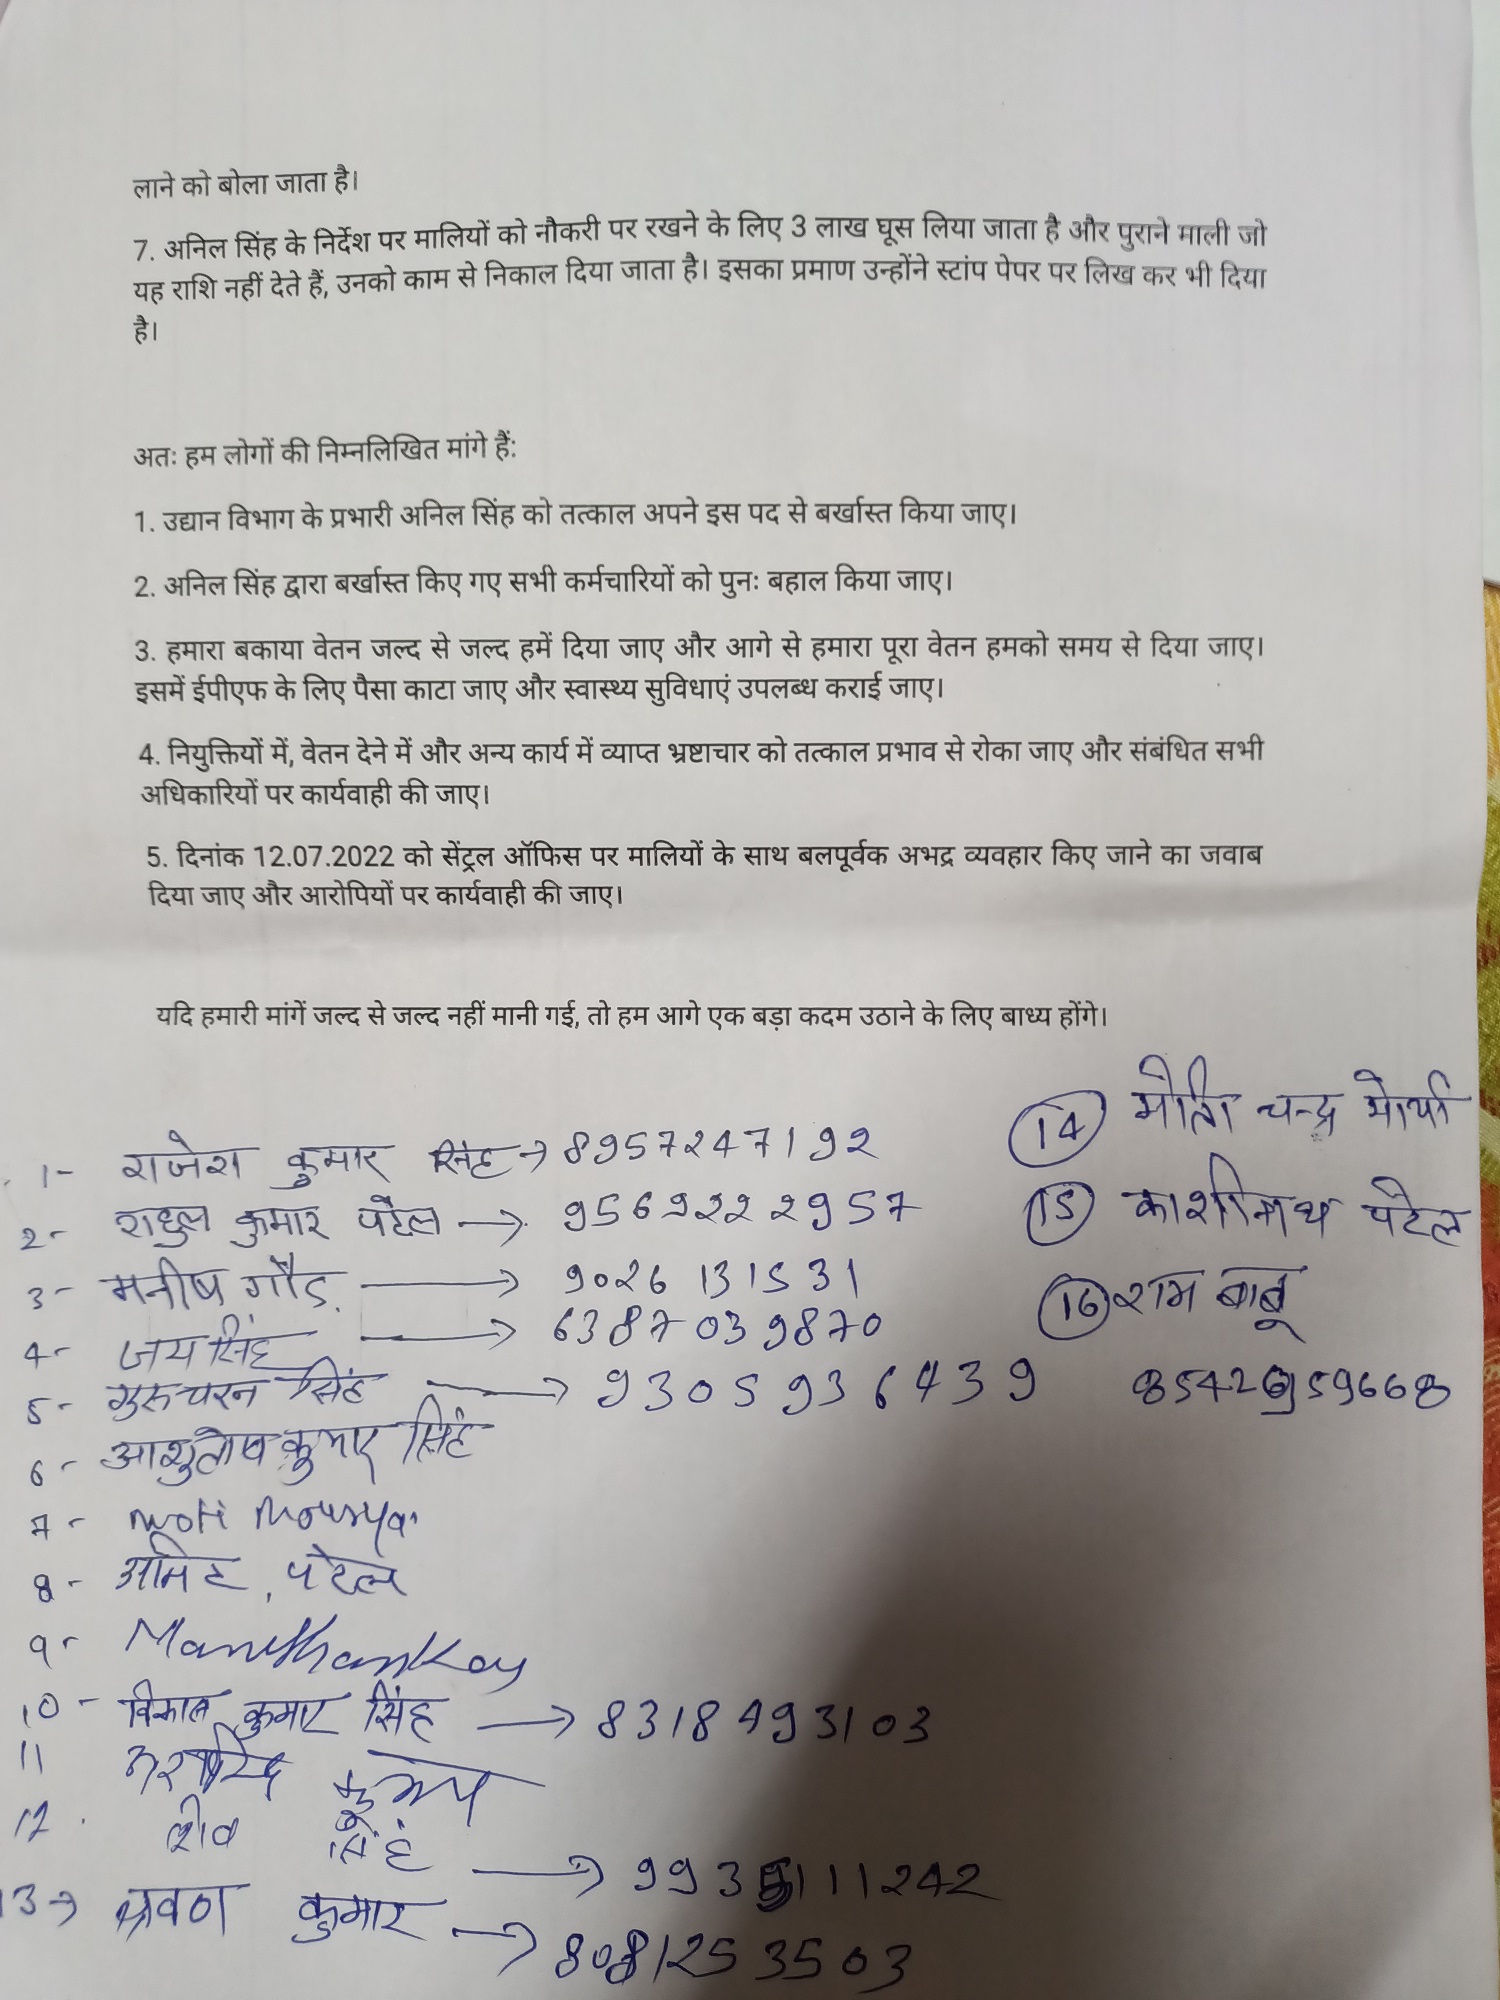 लाने को बोला जाता है।
7. अनिल सिंह के निर्देश पर मालियों को नौकरी पर रखने के लिए 3 लाख घूस लिया जाता है और पुराने माली जो
यह राशि नहीं देते हैं, उनको काम से निकाल दिया जाता है। इसका प्रमाण उन्होंने स्टांप पेपर पर लिख कर भी दिया
है।
अतः हम लोगों की निम्नलिखित मांगे हैं:
1. उद्यान विभाग के प्रभारी अनिल सिंह को तत्काल अपने इस पद से बर्खास्त किया जाए।
2. अनिल सिंह द्वारा बर्खास्त किए गए सभी कर्मचारियों को पुनः बहाल किया जाए।
3. हमारा बकाया वेतन जल्द से जल्द हमें दिया जाए और आगे से हमारा पूरा वेतन हमको समय से दिया जाए।
इसमें ईपीएफ के लिए पैसा काटा जाए और स्वास्थ्य सुविधाएं उपलब्ध कराई जाए।
4. नियुक्तियों में, वेतन देने में और अन्य कार्य में व्याप्त भ्रष्टाचार को तत्काल प्रभाव से रोका जाए और संबंधित सभी
अधिकारियों पर कार्यवाही की जाए।
5. दिनांक 12.07.2022 को सेंट्रल ऑफिस पर मालियों के साथ बलपूर्वक अभद्र व्यवहार किए जाने का जवाब
दिया जाए और आरोपियों पर कार्यवाही की जाए।
यदि हमारी मांगें जल्द से जल्द नहीं मानी गई, तो हम आगे एक बड़ा कदम उठाने के लिए बाध्य होंगे।
1- राजेश कुमार सिंह → 8957247192
2- राहुल कुमार पटेल → 9569222957
3- मनीष गौड़ → 9026131531
4- जय सिंह → 6387039870
5- गुरुचरन सिंह → 9305936439
6- आशुतोष कुमार सिंह
7- Moti Mourya
8- अमित पटेल
9-
10- विकास कुमार सिंह → 8318493103
11 कुमार
12. शिव सिंह → 9935111242
13→ श्रवण कुमार → 8081253503
14 मोती चन्द्र मोर्या
15 काशीनाथ पटेल
16 राम बाबू